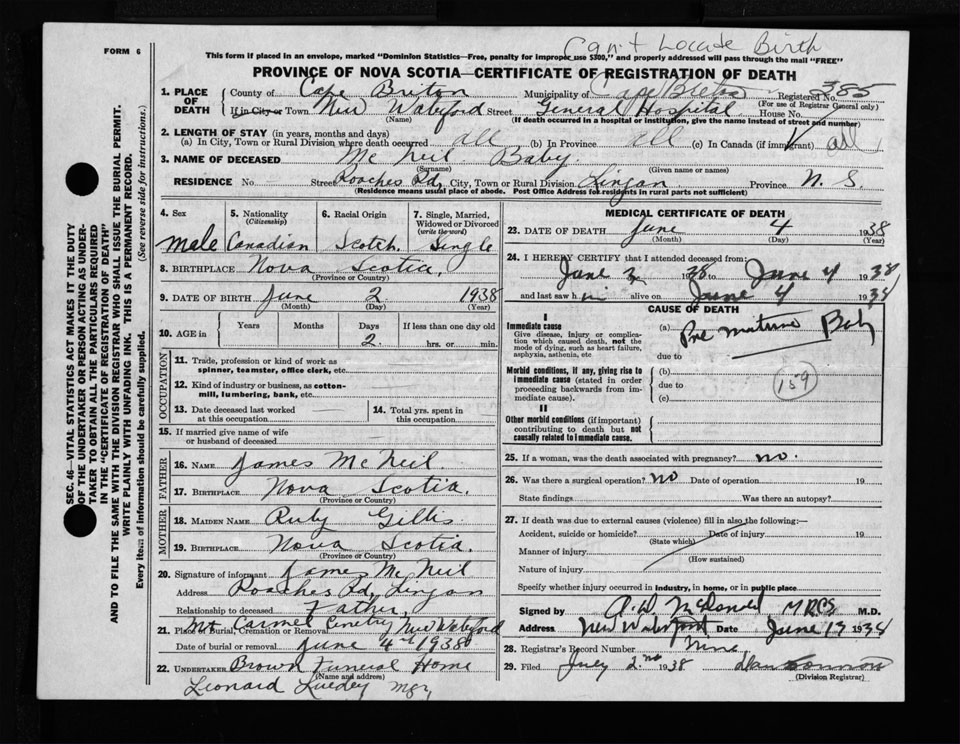 Can't Locate Birth
FORM 6
This form if placed in an envelope, marked "Dominion Statistics—Free, penalty for improper use $300," and properly addressed will pass through the mail "FREE"
PROVINCE OF NOVA SCOTIA—CERTIFICATE OF REGISTRATION OF DEATH
SEC. 46—VITAL STATISTICS ACT MAKES IT THE DUTY
OF THE UNDERTAKER OR PERSON ACTING AS UNDER-
TAKER TO OBTAIN ALL THE PARTICULARS REQUIRED
IN THE "CERTIFICATE OF REGISTRATION OF DEATH"
AND TO FILE THE SAME WITH THE DIVISION REGISTRAR WHO SHALL ISSUE THE BURIAL PERMIT.
WRITE PLAINLY WITH UNFADING INK. THIS IS A PERMANENT RECORD.
Every item of information should be carefully supplied. (See reverse side for instructions.)
1. PLACE OF DEATH
County of Cape Breton Municipality of Cape Breton Registered No. 385
(For use of Registrar General only)
If in City or Town New Waterford Street General Hospital House No.
(Name) (If death occurred in a hospital or institution, give the name instead of street and number)
2. LENGTH OF STAY (in years, months and days)
(a) In City, Town or Rural Division where death occurred all (b) In Province all (c) In Canada (if immigrant) all
3. NAME OF DECEASED Mc Neil Baby
(Surname) (Given name or names)
RESIDENCE No. Street Roaches Rd, City, Town or Rural Division Lingan Province N. S.
(Residence means usual place of abode. Post Office Address for residents in rural parts not sufficient)
4. Sex Male
5. Nationality (Citizenship) Canadian
6. Racial Origin Scotch
7. Single, Married, Widowed or Divorced (write the word) Single
8. BIRTHPLACE Nova Scotia
(Province or Country)
9. DATE OF BIRTH June 2 1938
(Month) (Day) (Year)
10. AGE in Years Months Days 2 If less than one day old hrs. or min.
OCCUPATION
11. Trade, profession or kind of work as
spinner, teamster, office clerk, etc.
12. Kind of industry or business, as cotton-
mill, lumbering, bank, etc.
13. Date deceased last worked
at this occupation
14. Total yrs. spent in
this occupation
15. If married give name of wife
or husband of deceased
FATHER
16. NAME James Mc Neil
17. BIRTHPLACE Nova Scotia.
(Province or Country)
MOTHER
18. MAIDEN NAME Ruby Gillis
19. BIRTHPLACE Nova Scotia.
(Province or Country)
20. Signature of informant James Mc Neil
Address Roaches Rd, Lingan
Relationship to deceased Father,
21. Place of Burial, Cremation or Removal Mt Carmel Cemetry New Waterford
Date of burial or removal June 4th 1938
22. UNDERTAKER Brown Funeral Home
(Name and address)
Leonard Mgr
MEDICAL CERTIFICATE OF DEATH
23. DATE OF DEATH June 4 1938
(Month) (Day) (Year)
24. I HEREBY CERTIFY that I attended deceased from:
June 3 1938 to June 4 1938,
and last saw him alive on June 4 1938
CAUSE OF DEATH
I
Immediate cause
Give disease, injury or complica-
tion which caused death, not the
mode of dying, such as heart failure,
asphyxia, asthenia, etc
(a) Pre mature Baby
due to
Morbid conditions, if any, giving rise to
immediate cause (stated in order
proceeding backwards from im-
mediate cause).
(b)
due to
(c)
159
II
Other morbid conditions (if important)
contributing to death but not
causally related to immediate cause.
25. If a woman, was the death associated with pregnancy? no.
26. Was there a surgical operation? no Date of operation 19
State findings Was there an autopsy?
27. If death was due to external causes (violence) fill in also the following:—
Accident, suicide or homicide? Date of injury 19
(State which)
Manner of injury
(How sustained)
Nature of injury
Specify whether injury occurred in industry, in home, or in public place
Signed by MRCS M.D.
Address New Waterford Date June 19 1938
28. Registrar's Record Number Nine
29. Filed July 2nd 1938
(Division Registrar)